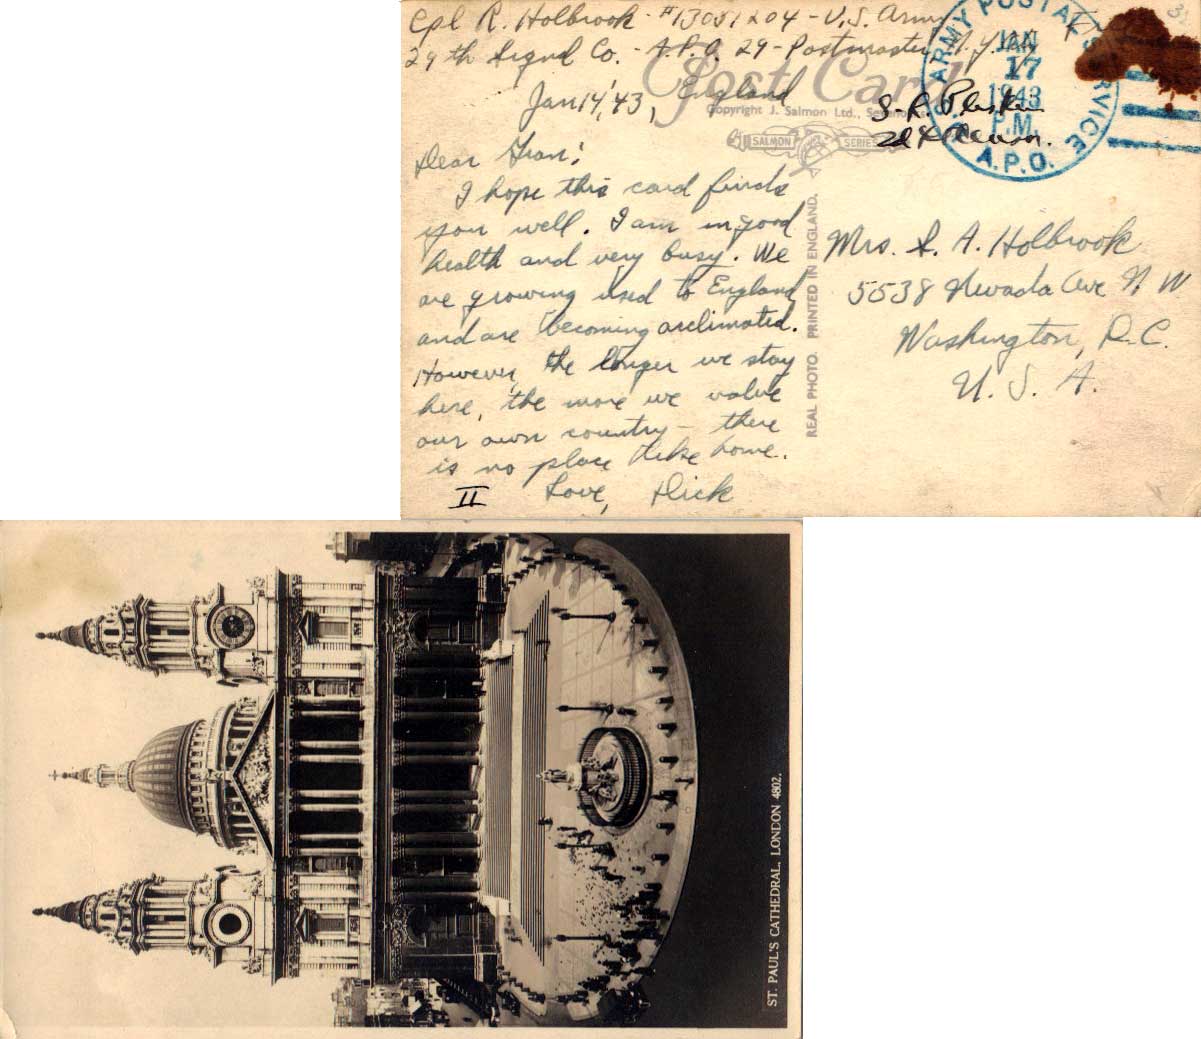 Cpl R. Holbrook - #13051204 - U.S. Army
29th Signal Co. - A.P.O. 29 - Postmaster, N.Y.
Jan 14, '43, England
Dear Gran:
I hope this card finds
you well. I am in good
health and very busy. We
are growing used to England
and are becoming acclimated.
However, the longer we stay
here, the more we value
our own country - there
is no place like home.
Love, Dick
II
Post Card
Copyright J. Salmon Ltd.,
SALMON SERIES
REAL PHOTO. PRINTED IN ENGLAND.
ARMY POSTAL SERVICE
JAN
17
1943
P.M.
A.P.O.
Mrs. S. A. Holbrook
5538 Nevada Ave N W
Washington, D.C.
U. S. A.
ST. PAUL'S CATHEDRAL, LONDON 4802.